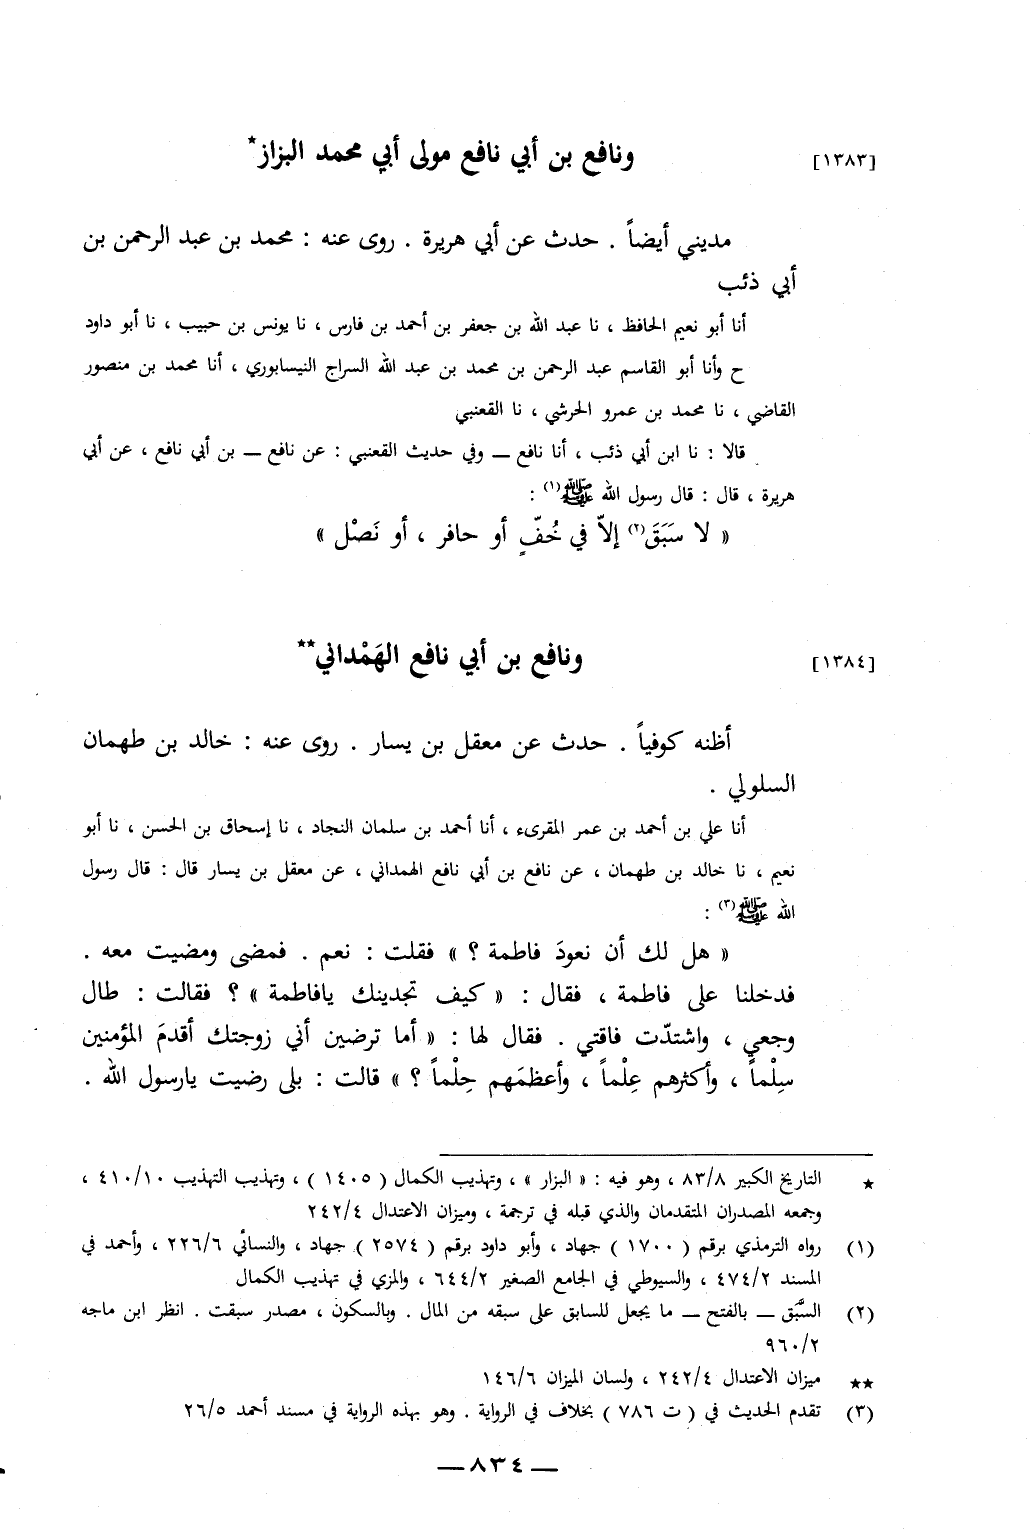 [١٣٨٣] ونافع بن أبي نافع مولى أبي محمد البزاز*
مديني أيضاً . حدث عن أبي هريرة . روى عنه : محمد بن عبد الرحمن بن
أبي ذئب
أنا أبو نعيم الحافظ ، نا عبد الله بن جعفر بن أحمد بن فارس ، نا يونس بن حبيب ، نا أبو داود
ح وأنا أبو القاسم عبد الرحمن بن محمد بن عبد الله السراج النيسابوري ، أنا محمد بن منصور
القاضي ، نا محمد بن عمرو الحرشي ، نا القعنبي
قالا : نا ابن أبي ذئب ، أنا نافع ــ وفي حديث القعنبي : عن نافع ــ بن أبي نافع ، عن أبي
هريرة ، قال : قال رسول الله ﷺ(١) :
« لا سَبَقَ(٢) إلاّ في خُفّ أو حافر ، أو نَصْل »
[١٣٨٤] ونافع بن أبي نافع الهَمْداني**
أظنه كوفياً . حدث عن معقل بن يسار . روى عنه : خالد بن طهمان
السلولي .
أنا علي بن أحمد بن عمر المقرىء ، أنا أحمد بن سلمان النجاد ، نا إسحاق بن الحسن ، نا أبو
نعيم ، نا خالد بن طهمان ، عن نافع بن أبي نافع الهمداني ، عن معقل بن يسار قال : قال رسول
الله ﷺ(٣) :
« هل لك أن نعودَ فاطمة ؟ » فقلت : نعم . فمضى ومضيت معه .
فدخلنا على فاطمة ، فقال : « كيف تجدينك يافاطمة » ؟ فقالت : طال
وجعي ، واشتدّت فاقتي . فقال لها : « أما ترضين أني زوجتك أقدمَ المؤمنين
سِلْماً ، وأكثرهم عِلْماً ، وأعظمَهم حِلْماً ؟ » قالت : بلى رضيت يارسول الله .
* التاريخ الكبير ٨٣/٨ ، وهو فيه : « البزار » ، وتهذيب الكمال ( ١٤٠٥ ) ، وتهذيب التهذيب ٤١٠/١٠ ،
وجمعه المصدران المتقدمان والذي قبله في ترجمة ، وميزان الاعتدال ٢٤٢/٤
(١) رواه الترمذي برقم ( ١٧٠٠ ) جهاد ، وأبو داود برقم ( ٢٥٧٤ ) جهاد ، والنسائي ٢٢٦/٦ ، وأحمد في
المسند ٤٧٤/٢ ، والسيوطي في الجامع الصغير ٦٤٤/٢ ، والمزي في تهذيب الكمال
(٢) السَّبَق ــ بالفتح ــ ما يجعل للسابق على سبقه من المال . وبالسكون ، مصدر سبقت . انظر ابن ماجه
٩٦٠/٢
** ميزان الاعتدال ٢٤٢/٤ ، ولسان الميزان ١٤٦/٦
(٣) تقدم الحديث في ( ت ٧٨٦ ) بخلاف في الرواية . وهو بهذه الرواية في مسند أحمد ٢٦/٥
ــ ٨٣٤ ــ